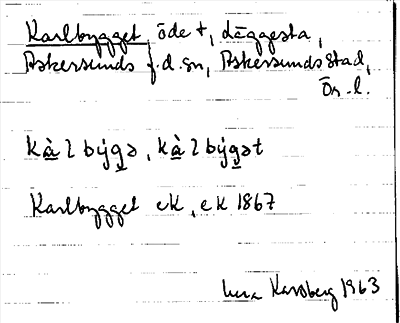 Karlbygget, öde t, Däggesta,
Askersunds f.d. sn, Askersunds stad,
Ör. l.
kà̱lbýgə, kà̱lbýgət
Karlbygget ek, ek 1867
Karlsberg 1963